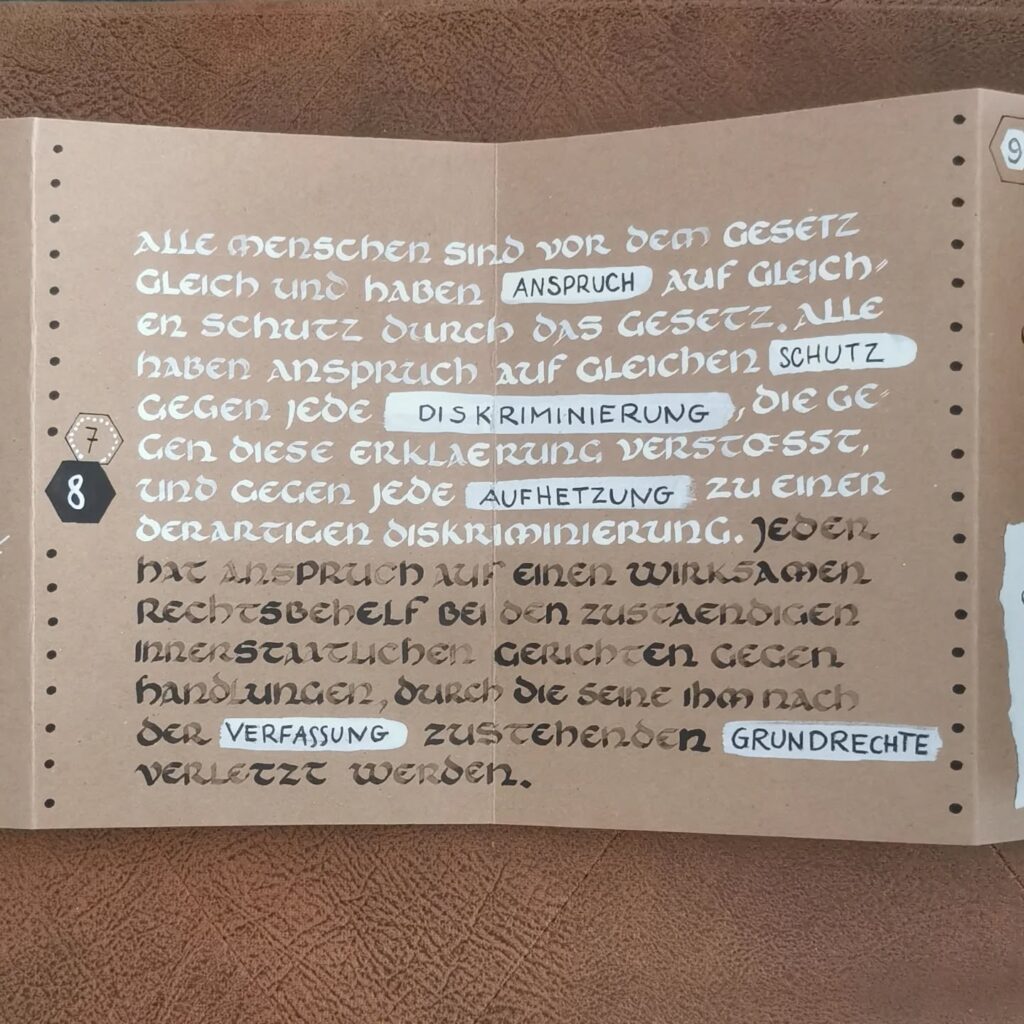 ALLE MENSCHEN SIND VOR DEM GESETZ
GLEICH UND HABEN ANSPRUCH AUF GLEICH-
EN SCHUTZ DURCH DAS GESETZ. ALLE
HABEN ANSPRUCH AUF GLEICHEN SCHUTZ
GEGEN JEDE DISKRIMINIERUNG, DIE GE-
GEN DIESE ERKLAERUNG VERSTŒSST,
UND GEGEN JEDE AUFHETZUNG ZU EINER
DERARTIGEN DISKRIMINIERUNG. JEDER
HAT ANSPRUCH AUF EINEN WIRKSAMEN
RECHTSBEHELF BEI DEN ZUSTAENDIGEN
INNERSTAATLICHEN GERICHTEN GEGEN
HANDLUNGEN, DURCH DIE SEINE IHM NACH
DER VERFASSUNG ZUSTEHENDEN GRUNDRECHTE
VERLETZT WERDEN.
7
8
9